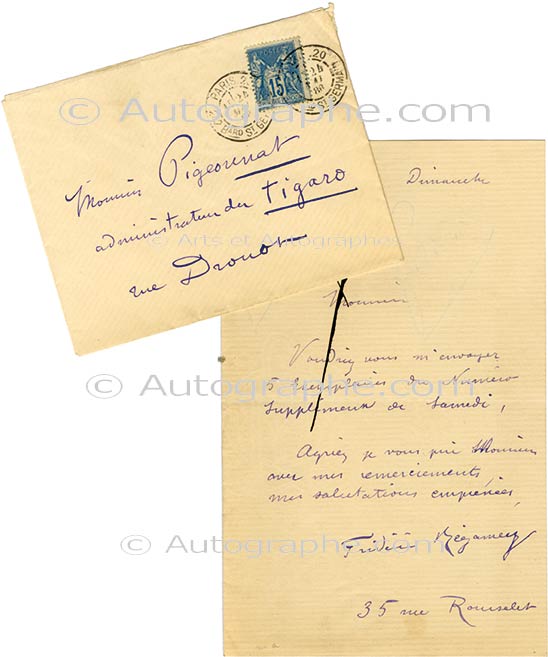 POSTES
15
PARIS
BARD ST GERMAIN
20
Monsieur Pigeonnat
administrateur du Figaro
rue Drouot
© Arts et Autographes
© Autographe.com
Dimanche
Monsieur
Voudriez vous m'envoyer
5 Exemplaires du Numéro
© Autographe.com
Supplément de Samedi,
Agréez je vous prie Monsieur
avec mes remerciements
mes salutations empressées
© Autographe.com
Frédéric Régamey
35 rue Rousselet